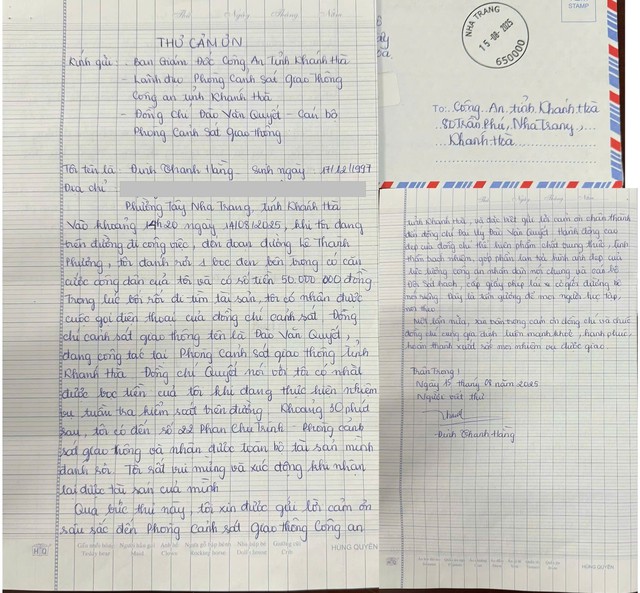 Thứ Ngày Tháng Năm
THƯ CẢM ƠN
Kính gửi: - Ban Giám Đốc Công An Tỉnh Khánh Hoà
- Lãnh đạo Phòng Cảnh sát Giao Thông
Công an tỉnh Khánh Hoà
- Đồng Chí Đào Văn Quyết - Cán bộ
Phòng Cảnh Sát Giao thông
Tôi tên là Đinh Thanh Hằng Sinh ngày 17/12/1997
Địa chỉ
Phường Tây Nha Trang, tỉnh Khánh Hoà
Vào khoảng 14h20 ngày 14/08/2025, khi tôi đang
trên đường đi công việc, đến đoạn đường Lê Thanh
Phương, tôi đánh rơi 1 bọc đen bên trong có căn
cước công dân của tôi và có số tiền 50.000.000 đồng
Trong lúc bối rối đi tìm tài sản, tôi có nhận được
cuộc gọi điện thoại của đồng chí cảnh sát. Đồng
chí cảnh sát giao thông tên là Đào Văn Quyết,
đang công tác tại Phòng Cảnh sát giao thông tỉnh
Khánh Hoà. Đồng chí Quyết nói với tôi có nhặt
được bọc tiền của tôi khi đang thực hiện nhiệm
vụ tuần tra kiểm soát trên đường. Khoảng 30 phút
sau, tôi có đến số 22 Phan Chu Trinh - Phòng cảnh
sát giao thông và nhận được toàn bộ tài sản mình
đánh rơi. Tôi rất vui mừng và xúc động khi nhận
lại được tài sản của mình
Qua bức thư này, tôi xin được gửi lời cảm ơn
sâu sắc đến Phòng Cảnh sát Giao thông Công an
HUNG QUYÊN
NHA TRANG
15-08-2025
650000
STAMP
To: Công An tỉnh Khánh Hoà
80 Trần Phú, Nha Trang,
Khánh Hoà
tỉnh Khánh Hoà, và đặc biệt gửi lời cảm ơn chân thành
đến đồng chí Đại Úy Đào Văn Quyết. Hành động cao
đẹp của đồng chí thể hiện phẩm chất trung thực, tinh
thần trách nhiệm, góp phần lan toả hình ảnh đẹp của
lực lượng công an nhân dân nói chung và cán bộ
nói riêng. Đây là tấm gương để mọi người học tập,
noi theo
Một lần nữa, xin trân trọng cảm ơn đồng chí và chúc
đồng chí cùng gia đình luôn mạnh khoẻ, hạnh phúc,
hoàn thành xuất sắc mọi nhiệm vụ được giao.
Trân Trọng!
Ngày 15 tháng 08 năm 2025
Người viết thư
Đinh Thanh Hằng
HUNG QUYÊN